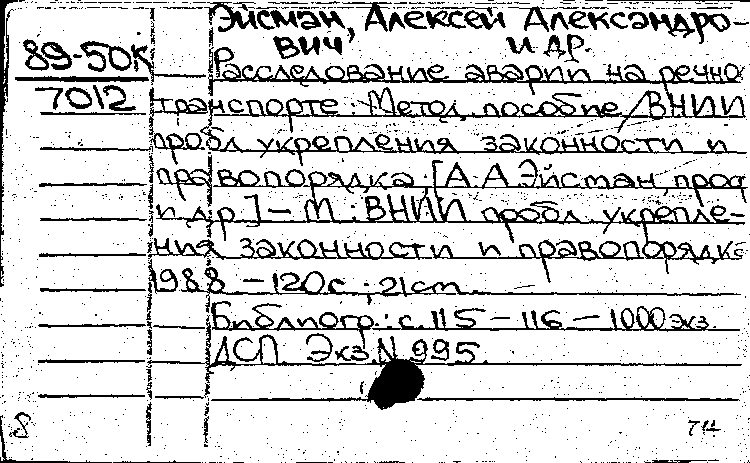 Эйсман, Алексей Александро-
вич и др.
89-50К
7012
Расследование аварии на речно
транспорте: Метод. пособие / ВНИИ
пробл укрепления законности и
правопорядка; [А. А. Эйсман, проф
и др.] – М.: ВНИИ пробл. укрепле-
ния законности и правопорядка
1988 – 120с ; 21 см.
Библиогр.: с. 115 – 116 – 1000 экз.
ДСП. Экз. N 995.
8